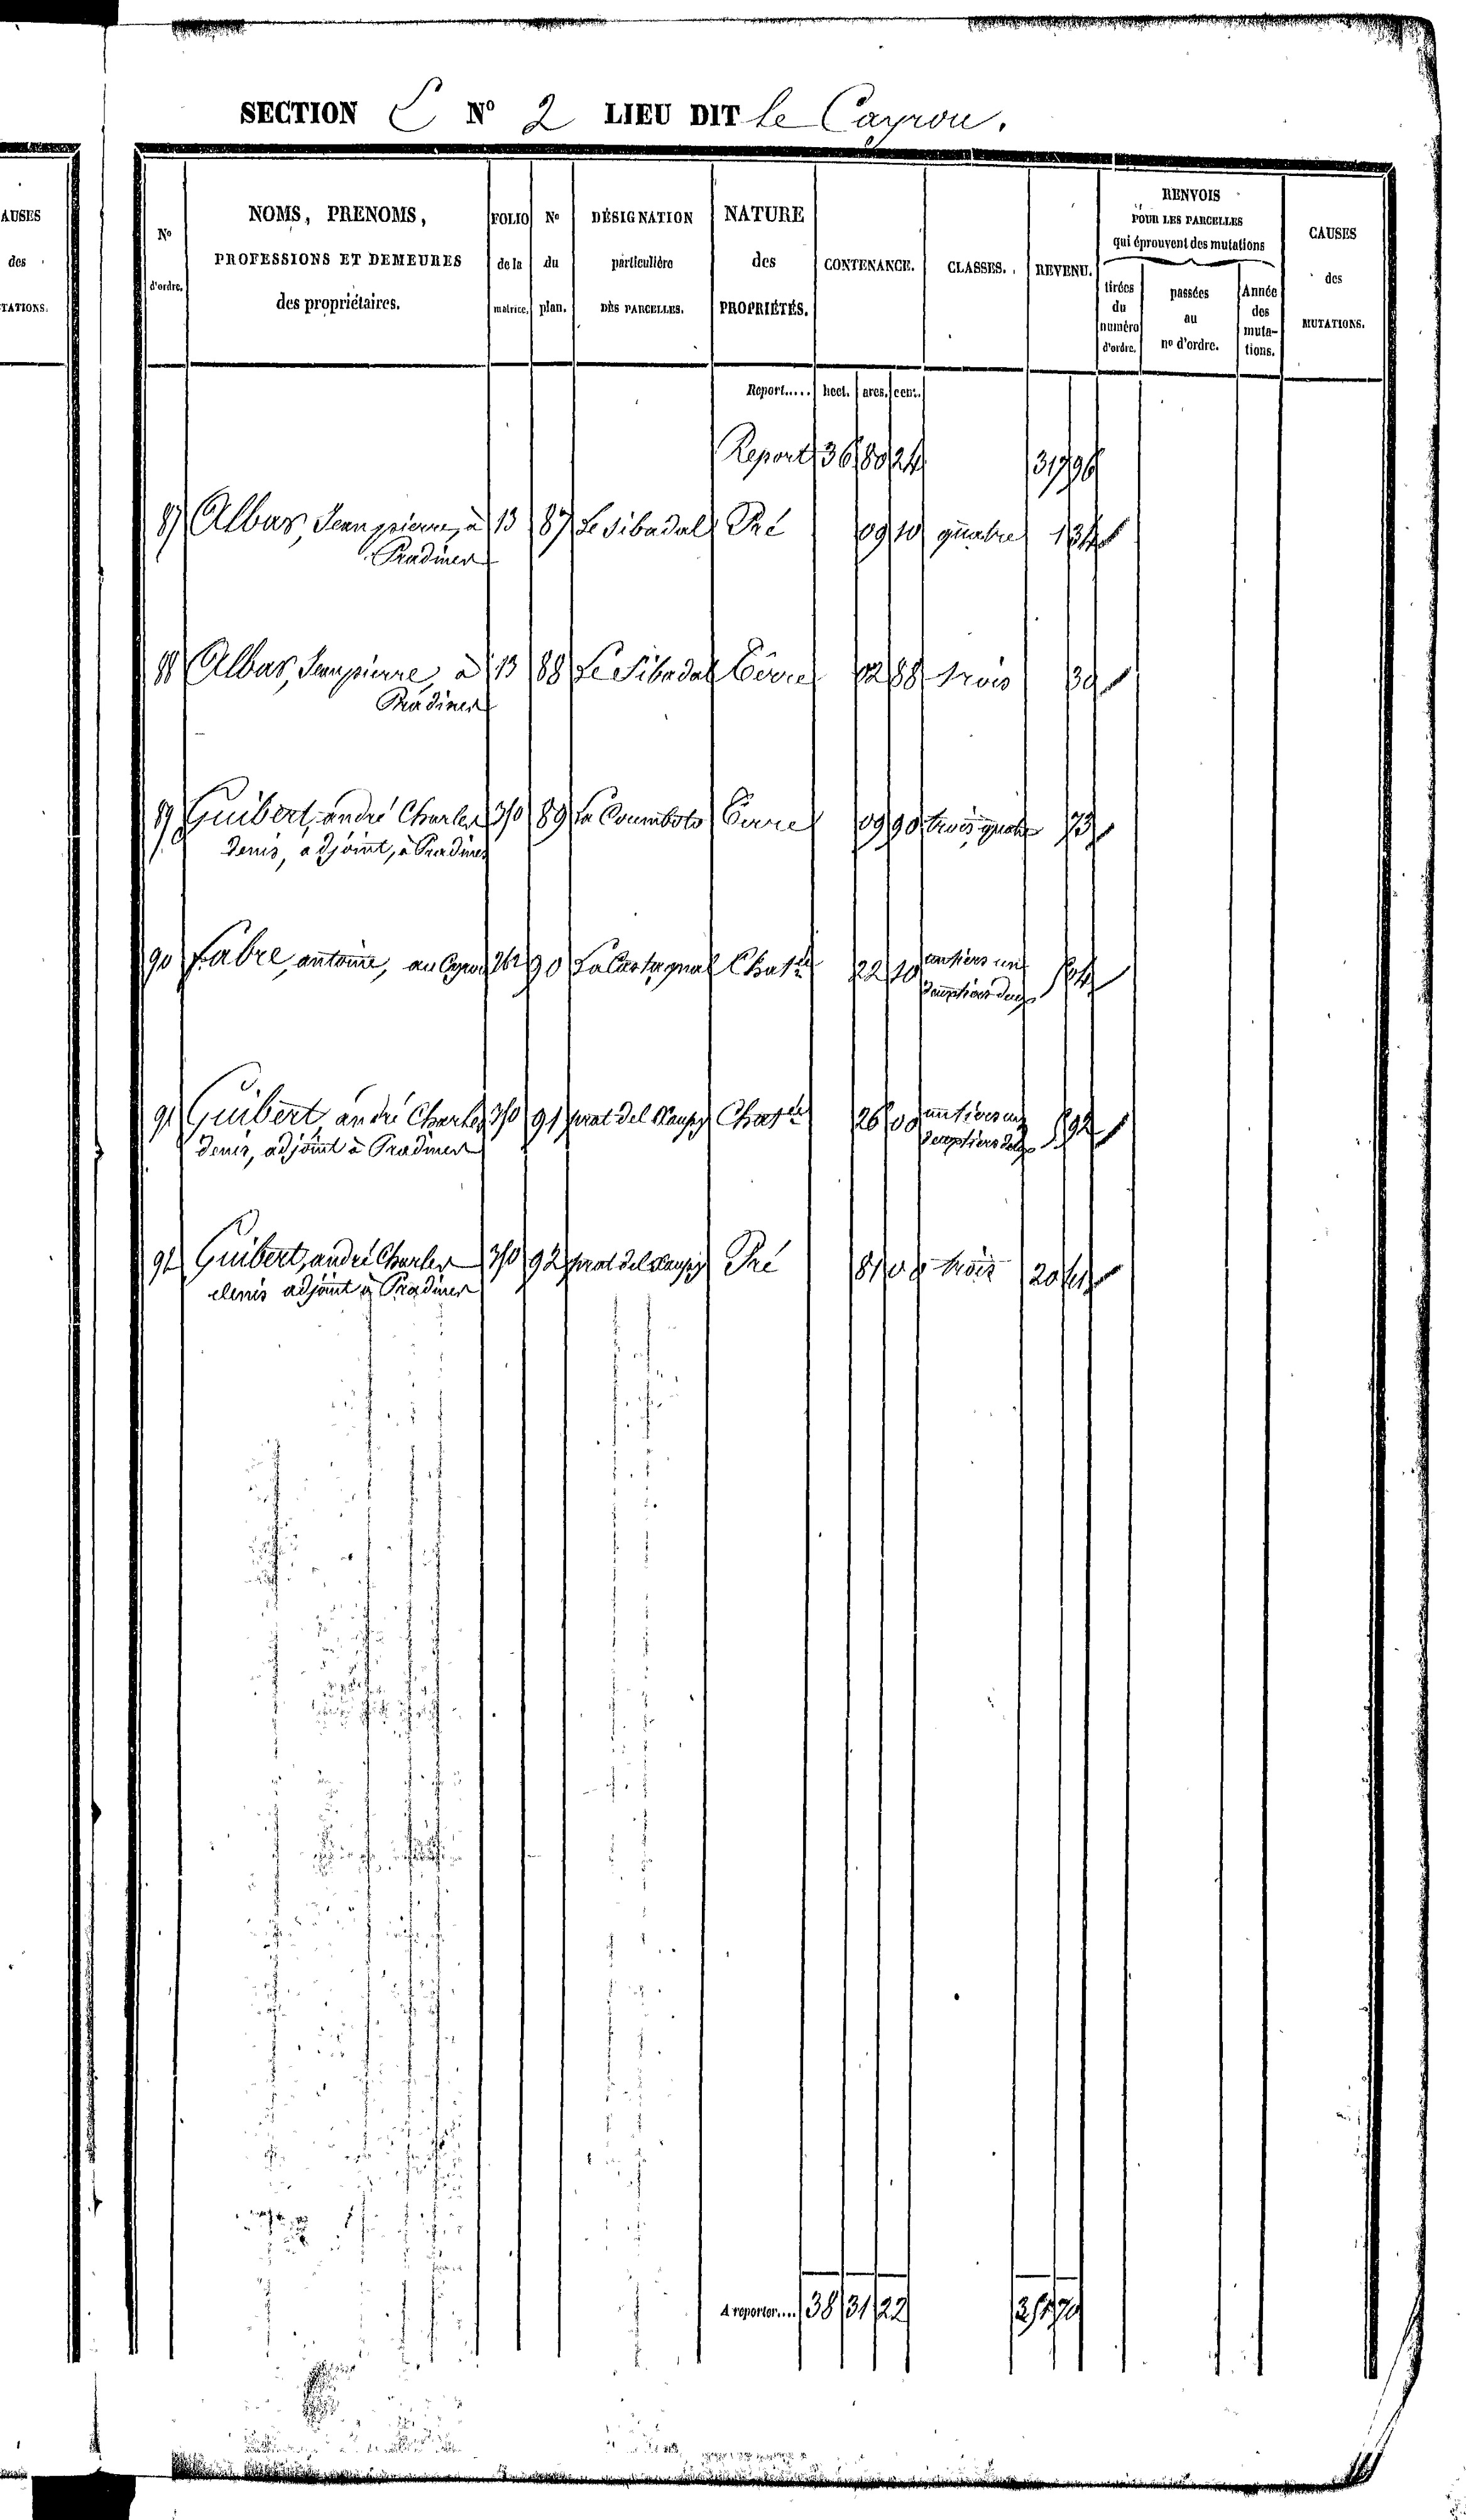 AUSES
des
TATIONS.
SECTION C N° 2 LIEU DIT le Cayrou.
N° d'ordre.
NOMS, PRENOMS, PROFESSIONS ET DEMEURES des propriétaires.
FOLIO de la matrice.
N° du plan.
DÉSIGNATION particulière DES PARCELLES.
NATURE des PROPRIÉTÉS.
CONTENANCE.
CLASSES.
REVENU.
RENVOIS POUR LES PARCELLES qui éprouvent des mutations
tirées du numéro d'ordre.
passées au n° d'ordre.
Année des mutations.
CAUSES des MUTATIONS.
Report..... hect. ares. cent.
Report 36 80 24 317 96
87 Albar, Jean pierre, à 13 87 Le Sibadal Pré 09 10 quatre 1 34
Pradines
88 Albar, Jean pierre, à 13 88 Le Sibadal Terre 02 88 trois 39
Pradines
89 Guibert, andré Charles 310 89 La Coumboto Terre 09 90 trois quatre 73
denis, adjoint, à Pradines
90 Fabre, antoine, au Cayrou 90 La Castagnal Chat.
22 10
91 Guibert andré Charles 310 91 prat del Chat.
26 00 92
denis, adjoint à Pradines
92 Guibert, andré Charles 310 92 prat del Pré 81 00 trois 20 41
denis adjoint à Pradines
A reporter.... 38 31 22